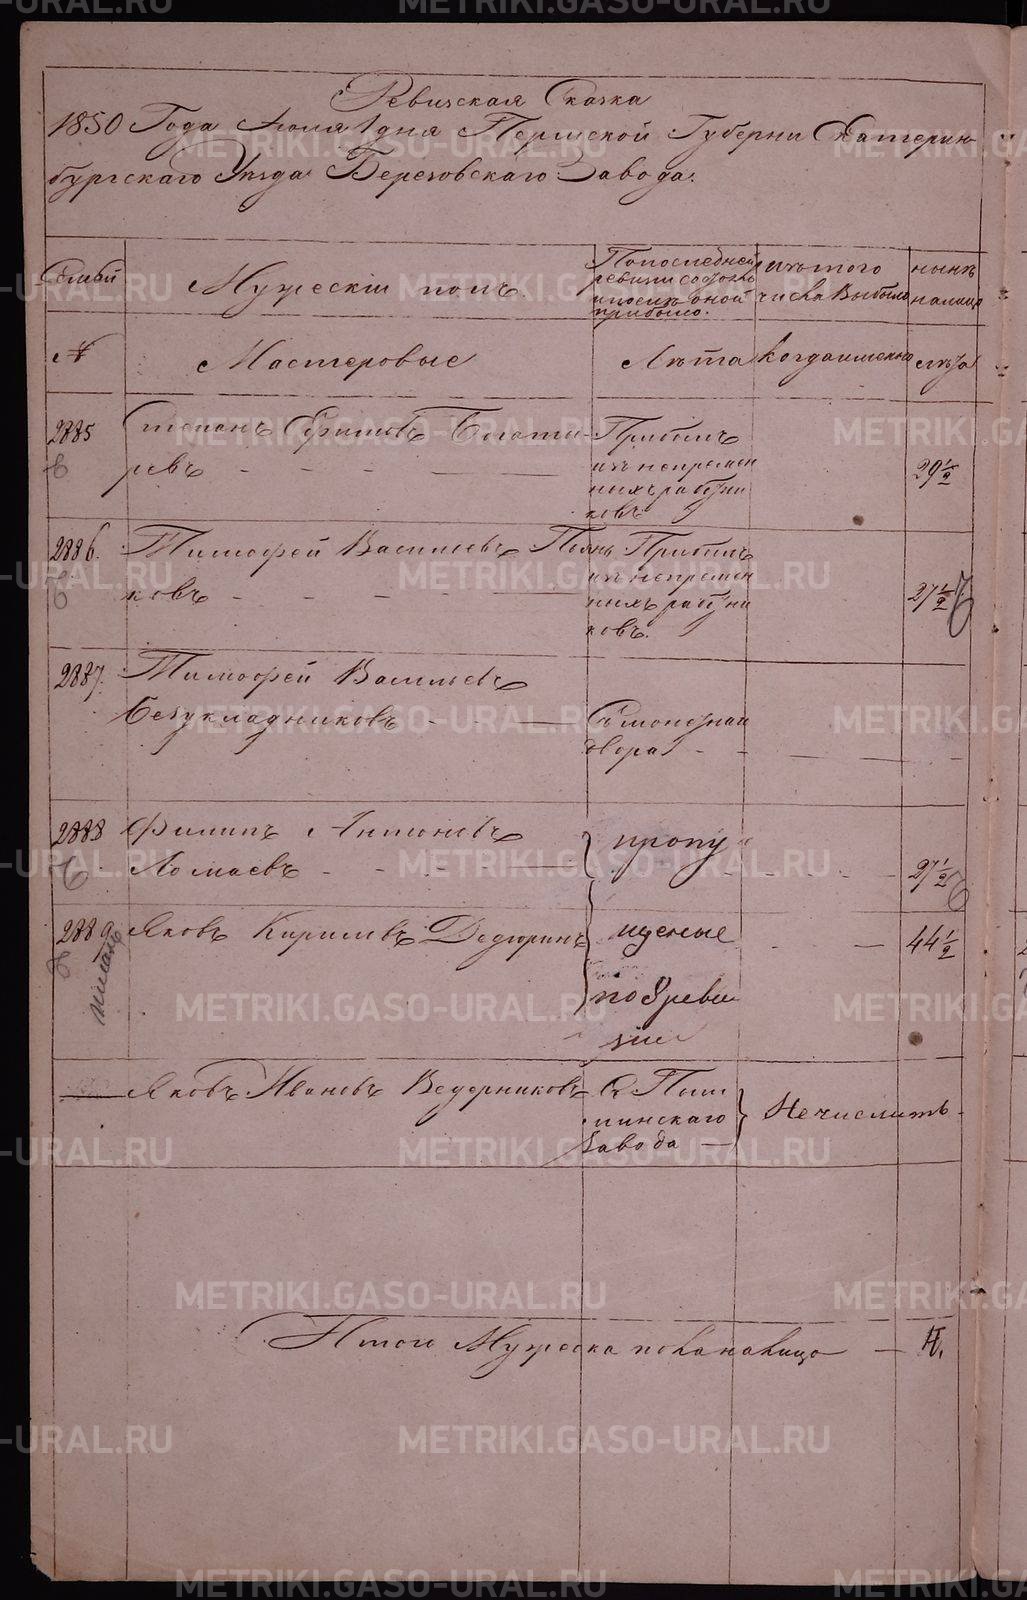 Ревизская Сказка
1850 Года Июля 1 дня Пермской Губерни Екатерин-
бургскаго Уезда Березовскаго Завода.
Семьи
Мужескій полъ.
По последней
ревизии состояло
и после оной
прибыло.
изъ того
числа выбыло
ныне
налицо
№
Мастеровые
Лѣта
когда именно
лѣта
2885
Степанъ Ефимовъ Богаты-
ревъ - - - -
Прибылъ
изъ непремен
ныхъ работни
ковъ
29 ½
2886.
Тимофей Васильевъ Пьян
ковъ - - - -
Прибылъ
изъ непремен
ныхъ работни
ковъ.
27 ½
2887.
Тимофей Васильевъ
Безукладниковъ -
С монетнаго
двора - -
2888
Филипъ Антоновъ
Ломаевъ - -
пропу
27 ½
2889
Яковъ Кириловъ Дедюринъ
щеные
44 ½
по 8 реви
зие
Яковъ Ивановъ Ведерниковъ
Съ Пыш
минскаго
завода —
Не числить
Итого Мужеска пола налицо — 4.
METRIKI.GASO-URAL.RU